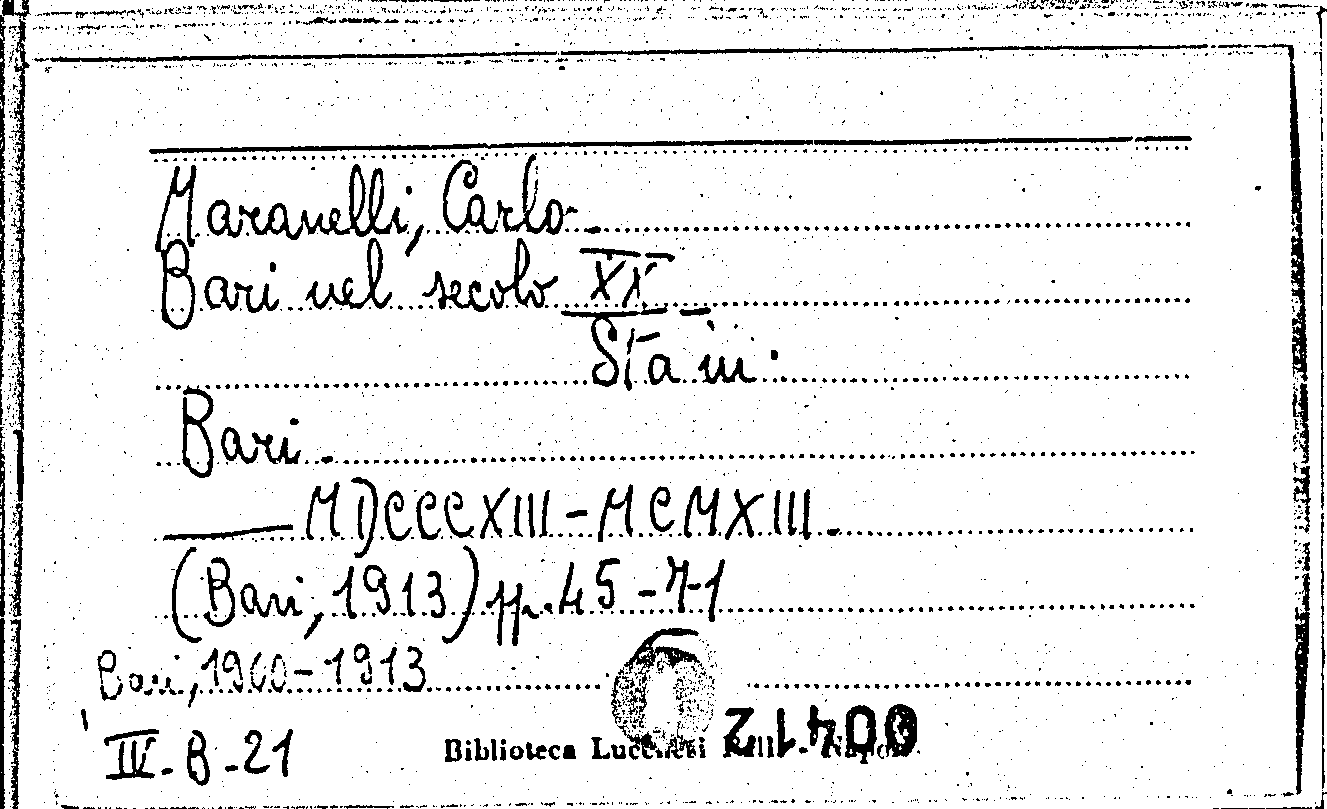 Maranelli, Carlo.
Bari nel secolo XX -
Sta in:
Bari.
— MDCCCXIII-MCMXIII.
(Bari, 1913) pp. 45-71
Bari, 1900-1913
IV-B-21
Biblioteca Lucchesi Palli - Napoli
00412